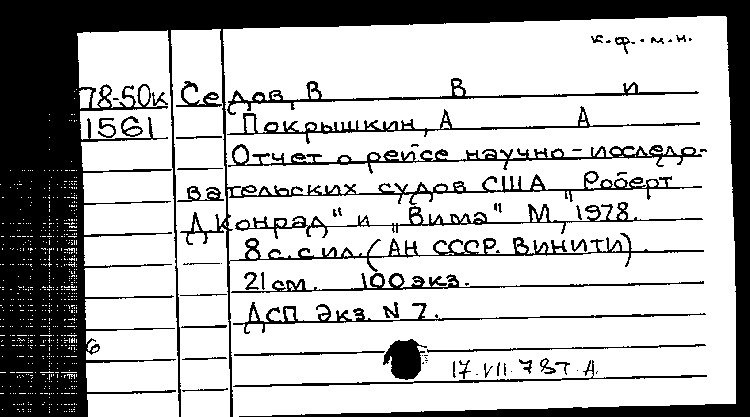 к.ф.-м.н.
78-50к Седов, В В и
1561 Покрышкин, А А
Отчет о рейсе научно-исследо-
вательских судов США „Роберт
Д. Конрад" и „Вима" М., 1978.
8 с. с ил. (АН СССР. ВИНИТИ).
21 см. 100 экз.
ДСП Экз. N 7.
6
17.VII.78т. А.